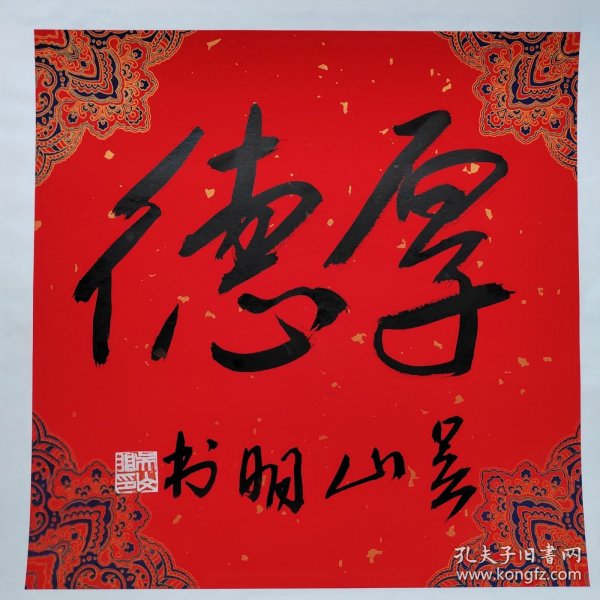 厚德
吴山明书
吴山明印
孔夫子旧書网
www.kongfz.com